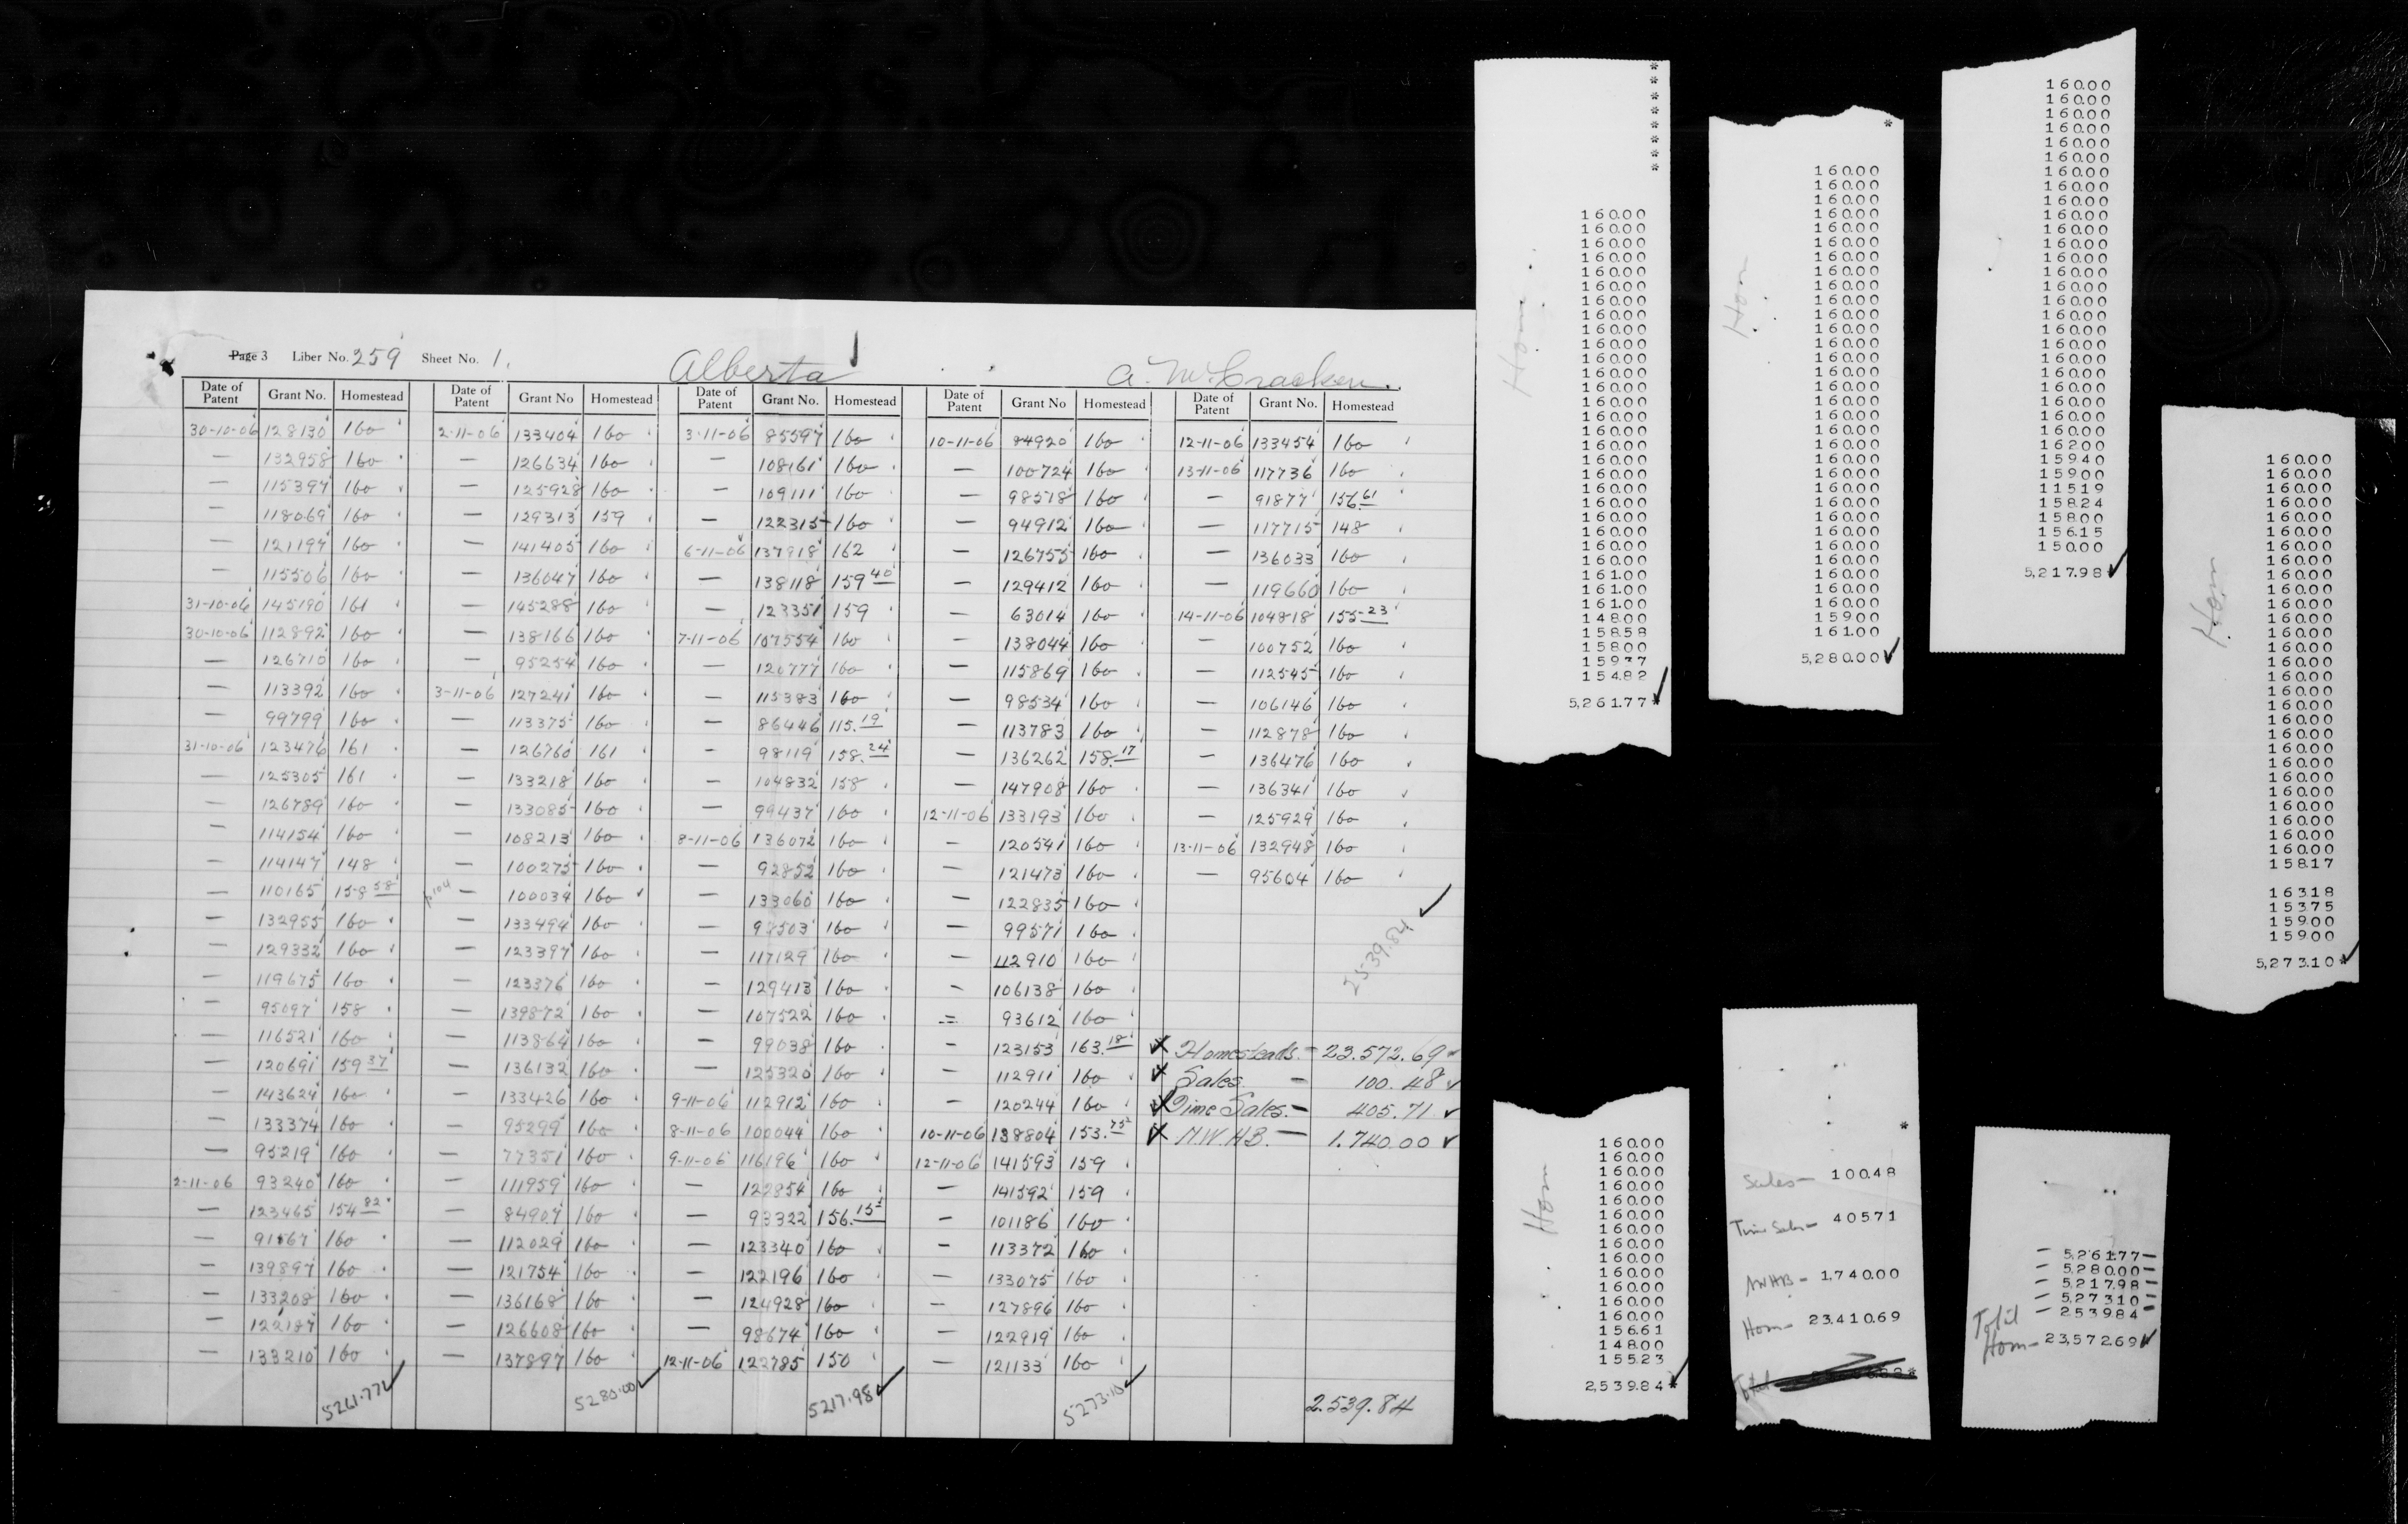 Page 3 Liber No. 259 Sheet No. 1.
Alberta
A. McCracken.
Date of Patent Grant No. Homestead Date of Patent Grant No Homestead Date of Patent Grant No. Homestead Date of Patent Grant No Homestead Date of Patent Grant No. Homestead
30-10-06 128130 160 2-11-06 133404 160 3-11-06 85597 160 10-11-06 84920 160 12-11-06 133454 160
— 132958 160 — 126634 160 — 108161 160 — 100724 160 13-11-06 117736 160
— 115397 160 — 125928 160 — 109111 160 — 98578 160 — 91877 156.61
— 118069 160 — 129313 159 — 122315 160 — 94912 160 — 117715 148
— 121197 160 — 141405 160 6-11-06 137918 162 — 126755 160 — 136033 160
— 115506 160 — 136047 160 — 138118 159 40 — 129412 160 — 119660 160
31-10-06 145190 161 — 145288 160 — 123351 159 — 63014 160 14-11-06 104818 155-23
30-10-06 112892 160 — 138166 160 7-11-06 107554 160 — 138044 160 — 100752 160
— 126710 160 — 95254 160 — 120777 160 — 115869 160 — 112545 160
— 113392 160 3-11-06 127241 160 — 115383 160 — 98534 160 — 106146 160
— 99799 160 — 113375 160 — 86446 115.19 — 113783 160 — 112878 160
31-10-06 123476 161 — 126760 161 — 98119 158.24 — 136262 158.17 — 136476 160
— 125305 161 — 133218 160 — 104832 158 — 147908 160 — 136341 160
— 126789 160 — 133085 160 — 99437 160 12-11-06 133193 160 — 125929 160
— 114154 160 — 108213 160 8-11-06 136072 160 — 120541 160 13-11-06 132948 160
— 114147 148 — 100275 160 — 92852 160 — 121473 160 — 95604 160
— 110165 158 58 — 100034 160 — 133060 160 — 122835 160
— 132955 160 — 133494 160 — 97503 160 — 99571 160
— 129332 160 — 123397 160 — 117129 160 — 112910 160
— 119675 160 — 123376 160 — 129413 160 — 106138 160
— 95097 158 — 139872 160 — 107522 160 — 93612 160
— 116521 160 — 113864 160 — 99038 160 — 123153 163.18
— 120691 159 37 — 136132 160 — 125320 160 — 112911 160
— 143624 160 — 133426 160 9-11-06 112912 160 — 120244 160
— 133374 160 — 95299 160 8-11-06 100044 160 10-11-06 138804 153.75
— 95219 160 — 77351 160 9-11-06 116196 160 12-11-06 141593 159
2-11-06 93240 160 — 111959 160 — 122854 160 — 141592 159
— 123465 154 82 — 84907 160 — 93322 156.15 — 101186 160
— 91167 160 — 112029 160 — 123340 160 — 113372 160
— 139897 160 — 121754 160 — 122196 160 — 133075 160
— 133208 160 — 136168 160 — 124928 160 — 127896 160
— 122187 160 — 126608 160 — 98674 160 — 122919 160
— 133210 160 — 137897 160 12-11-06 122785 150 — 121133 160
5261.77 5280.00 5217.98 5273.10 2.539.84
2539.84
Homesteads. — 23.572.69
Sales — 100.48
Time Sales. — 405.71
N.W.H.B. — 1.740.00
Hom
160.00
160.00
160.00
160.00
160.00
160.00
160.00
160.00
160.00
160.00
160.00
160.00
160.00
160.00
160.00
160.00
160.00
160.00
160.00
160.00
160.00
160.00
160.00
160.00
160.00
161.00
161.00
161.00
148.00
158.58
158.00
159.37
154.82
5,261.77*
Hom
160.00
160.00
160.00
160.00
160.00
160.00
160.00
160.00
160.00
160.00
160.00
160.00
160.00
160.00
160.00
160.00
160.00
160.00
160.00
160.00
160.00
160.00
160.00
160.00
160.00
160.00
160.00
160.00
160.00
160.00
160.00
159.00
161.00
5,280.00
160.00
160.00
160.00
160.00
160.00
160.00
160.00
160.00
160.00
160.00
160.00
160.00
160.00
160.00
160.00
160.00
160.00
160.00
160.00
160.00
160.00
160.00
160.00
160.00
160.00
162.00
159.40
159.00
115.19
158.24
158.00
156.15
150.00
5,217.98
Hom
160.00
160.00
160.00
160.00
160.00
160.00
160.00
160.00
160.00
160.00
160.00
160.00
160.00
160.00
160.00
160.00
160.00
160.00
160.00
160.00
160.00
160.00
160.00
160.00
160.00
160.00
160.00
160.00
158.17
163.18
153.75
159.00
159.00
5,273.10*
Hom
160.00
160.00
160.00
160.00
160.00
160.00
160.00
160.00
160.00
160.00
160.00
160.00
160.00
156.61
148.00
155.23
2,539.84*
Sales — 100.48
Time Sales — 405.71
NWHB — 1,740.00
Hom — 23,410.69
Total
— 5,261.77 —
— 5,280.00 —
— 5,217.98 —
— 5,273.10 —
— 2,539.84 —
Total
Hom — 23,572.69